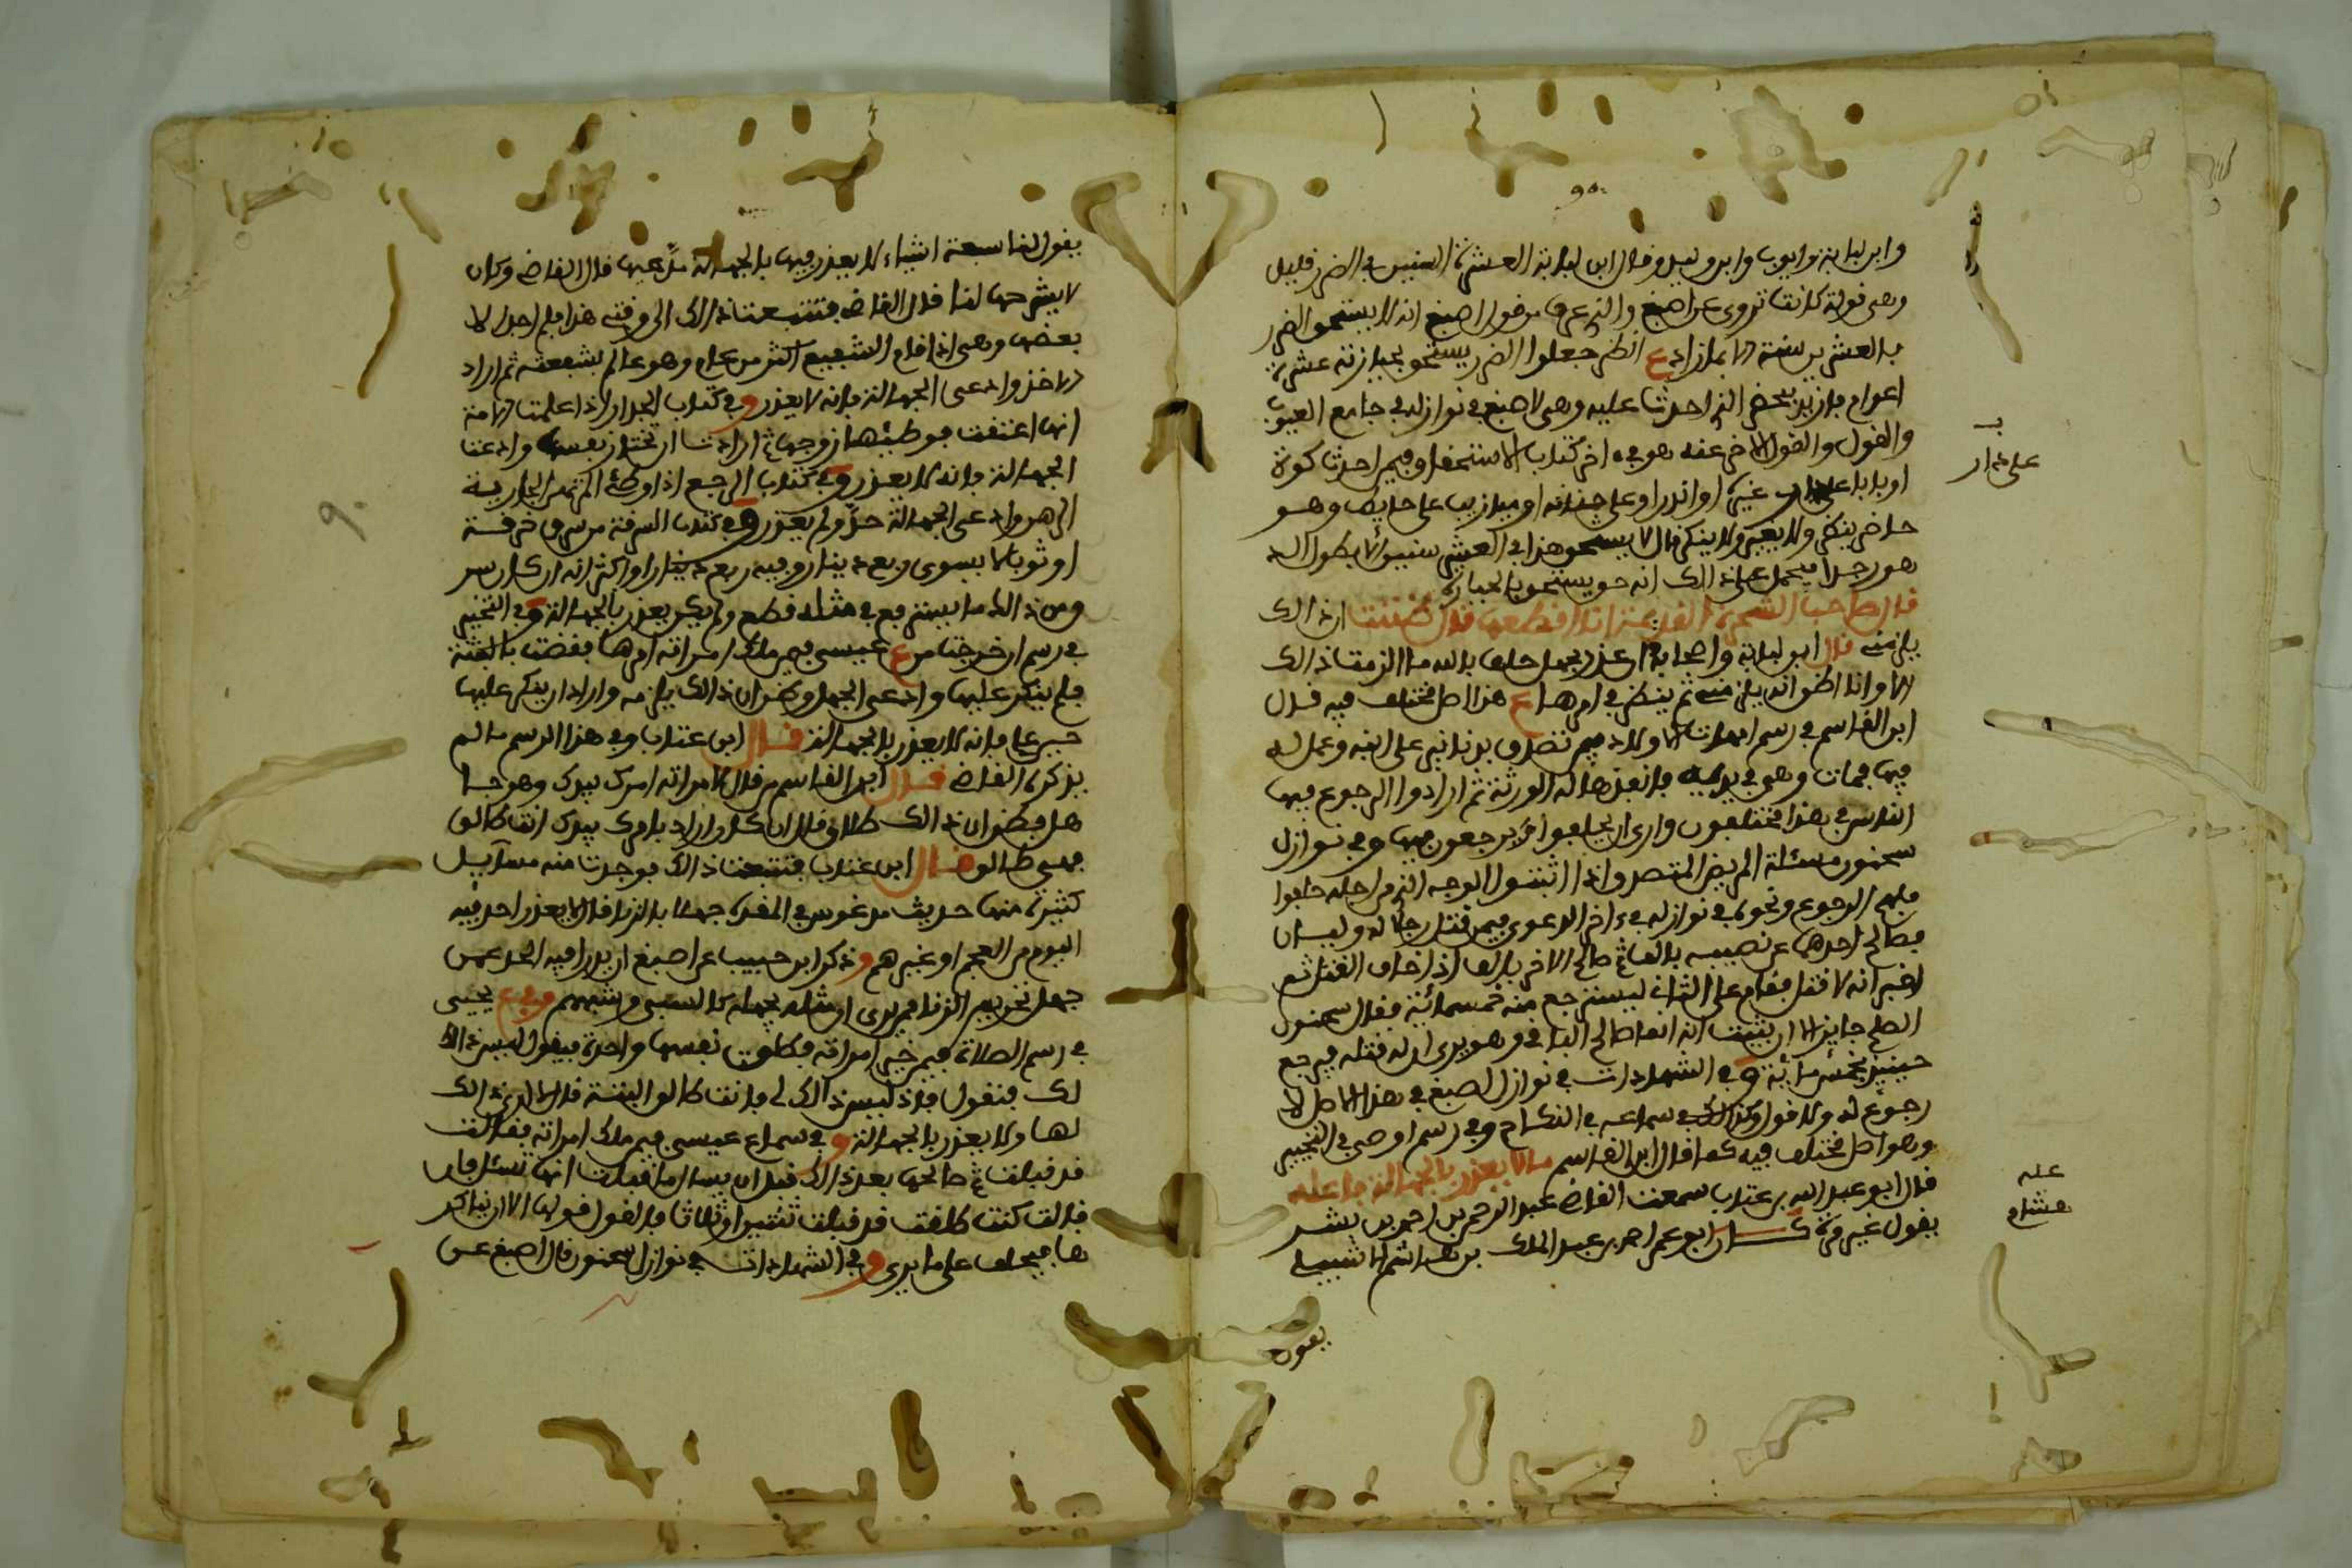 وابن لبابة وايوب وابن وليد وقال ابن لبابة العشرة السنين في الضرر قليل
وهي قولة كانت تروى عن اصبغ والذي عرف من قول اصبغ انه لا يستحق الضرر
بالعشرين سنة الا بما زاد ع انظر جعلوا الضرر يستحق بحيازته عشرة
اعوام فازيد بمحضر الذي احدث عليه وهي لاصبغ في نوازله في جامع العيوب
والقول والقول الاخر عنه هو في اخر كتاب الاستحقاق فيمن احدث كوة
او بابا على غيره او اندرا وعلى جنانه او ميازيب على حايط وهو
حاضر ينظر ولا يغير ولا ينكر قال لا يستحق هذا في العشر سنين الا بطول الد
هور جدا فيحمل على ذالك انه حق يستحق بالحيازة
قال صاحب الشجرة القديمة انا اقطعها قال ظننت ان ذالك
يلزمني قال ابن لبابة واصحابه ان عذر بجهل حلف بالله ما الزمت ذالك
الا وانا اظن انه يلزمني ثم ينظر في امرها ع هذا اصل مختلف فيه قال
ابن القاسم في رسم امهات الاولاد فيمن تصدق بدنانير على ابنه وعمل له
فيها فمات وهي في يديه فانفذها له الورثة ثم ارادوا الرجوع فيها
الناس في هذا مختلفون وارى ان يحلفوا او يرجعون فيها وفي نوازل
سحنون مسئلة المريض المتصدق اذا اثبتوا الوجه الذي من اجله حلفوا
فلهم الرجوع ونحوه في نوازله في اخر الدعوى فيمن قتل رجلا له وليان
فصالح احدهما عن نصيبه بالف ثم صالح الاخر بالف اذ اخاف القتل ثم
اخبر انه لا قتل فقام على الثاني ليسترجع منه خمسمائة فقال سحنون
الصلح جايز الا ان يثبت انه انما صالح الباقي وهو يرى ان له قتله فيرجع
حينئذ بخمسمائة وفي الشهادات في نوازل اصبغ في هذا الاصل لا
رجوع له ولا قول وكذالك في سماعه في النكاح وفي رسم اوصى في التخيير
وهو اصل مختلف فيه كما قال ابن القاسم ما لا يعذر بالجهالة فاعله
قال ابو عبد الله بن عتاب سمعت القاضي عبد الرحمن بن احمد بن بشر
يقول غير مرة كـــان ابو عمر احمد بن عبد الملك بن هاشم الاشبيلي
يقول
على دار
علـه
هشام
يقول لنا سبعة اشياء لا يعذر فيها بالجهالة مدعيها قال القاضي وكان
لا يشرحها لنا قال القاضي فتتبعت ذالك الى وقتي هذا فلم اجد الا
بعضها وهي اذا قام الشفيع اكثر من عام وهو عالم بشفعته ثم اراد
الاخذ وادعى الجهالة فانه لا يعذر وفي كتاب الخيار اذا علمت الامة
انها اعتقت فوطئها زوجها ثم ارادت ان تختار نفسها وادعت
الجهالة فانه لا يعذر وفي كتاب الرجم اذا وطئ المرتهن الجارية
الرهن وادعى الجهالة حد ولم يعذر وفي كتاب السرقة من سرق خرقة
او ثوبا لا يسوى ربع دينار وفيه ربع دينار او اكثر انه ان كان سر
ومن ذالك ما يسترفع في مثله قطع ولم يكن يعذر بالجهالة وفي التخيير
في رسم ان خرجت من ع عيسى فيمن ملك امراته امرها فقضت بالبتة
فلم ينكر عليها وادعى الجهل وظن ان ذالك يلزمه واراد ان ينكر عليها
حين علم فانه لا يعذر بالجهالة قـــال ابن عتاب وفي هذا الرسم ما لم
يذكره القاضي قـــال ابن القاسم من قال لامراته امرك بيدك وهو جا
هل فظن ان ذالك طلاق قال ان كان اراد بامرك بيدك انت طالق
فهي طالق قـــال ابن عتاب فتتبعت ذالك فوجدت منه مسايل
كثيرة منها حديث مرغوس في المقرة جهلا بالزنا قال لا يعذر احد فيه
اليوم من العجم او غيرهم وذكر ابن حبيب عن اصبغ ان يدرا فيه الحد عمن
جهل تحريم الزنا ممن يرى ان مثله يجهله كالسبي وشبههم وفي ع يحيى
في رسم الصلاة فيمن خير امراته فطلقت نفسها واحدة فيقول ليس ذالك
لك فتقول فاذ ليس ذالك لي فانت طالق البتة قال لا ارى ذالك
لها ولا يعذر بالجهالة وفي سماع عيسى فيمن ملك امراته فقالت
قد قبلت ثم صالحها بعد ذالك قبل ان يسال ما قبلت انها تسئل فان
قالت كنت طلقت قد قبلت تثنين او ثلاثا فالقول قولها الا ان يناكر
ها فيحلف على ما يرى وفي الشهادات في نوازل سحنون قال اصبغ عن